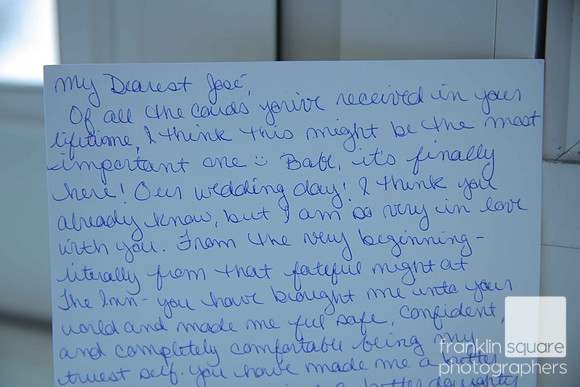 My Dearest José,
Of all the cards you've received in your
lifetime, I think this might be the most
important one :) Babe, it's finally
here! Our wedding day! I think you
already know, but I am so very in love
with you. From the very beginning -
literally from that fateful night at
The Inn - you have brought me into your
world and made me feel safe, confident,
and completely comfortable being my
truest self. You have made me a better
a better
franklin square
photographers